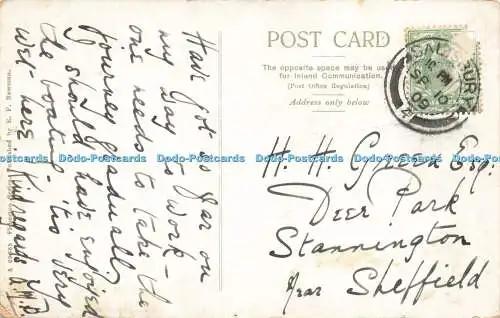 POST CARD
The opposite space may be used
for Inland Communication.
(Post Office Regulation)
Address only below
H. H. Green Esq.
Deer Park
Stannington
Near Sheffield
Have got so far on
my way - work -
one needs to take the
journey gradually
I should have enjoyed
the boating. 'tis very
wet here. Kind regards
Dodo-Postcards Dodo-Postcards Dodo-Postcards Dodo-Postcards Dodo-Postcards
Dodo-Postcards Dodo-Postcards Dodo-Postcards Dodo-Postcards Dodo-Postcards